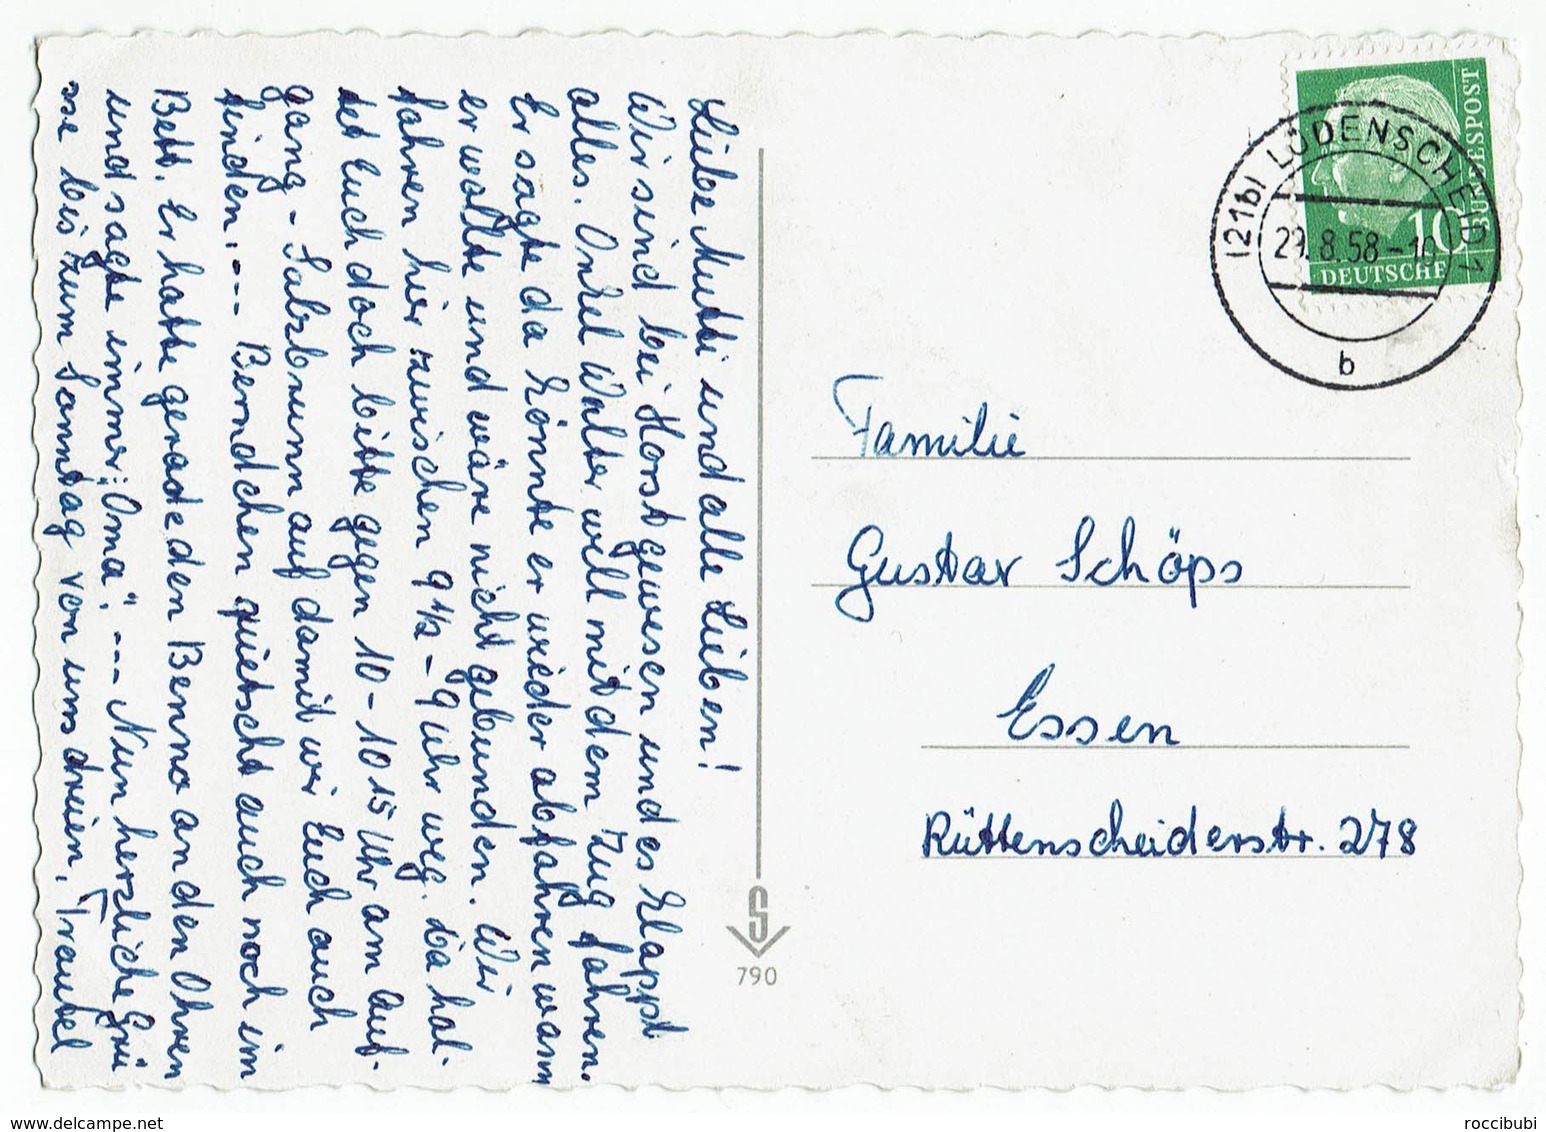 Liebe Mutti und alle Lieben!
Wir sind bei Horst gewesen und es klappt
alles. Onkel Walter will mit dem Zug fahren.
Er sagte da könnte er wieder abfahren wann
er wollte und wäre nicht gebunden. Wir
fahren hier zwischen 9 1/2 - 9 Uhr weg. Da hal-
tet Euch doch bitte gegen 10 - 10 15 Uhr am Auf-
gang - Salzbrunn auf damit wir Euch auch
finden. --- Berndchen quietscht auch noch im
Bett. Er hatte gerade den Benno an den Ohren
und sagte immer: „Oma". --- Nun herzliche Grü
sse bis zum Sonntag von uns dreien, Traubel
S
790
DEUTSCHE BUNDESPOST
10
(21b) LÜDENSCHEID 1
29.8.58 - 10
b
Familie
Gustav Schöps
Essen
Rüttenscheiderstr. 278
www.delcampe.net
roccibubi